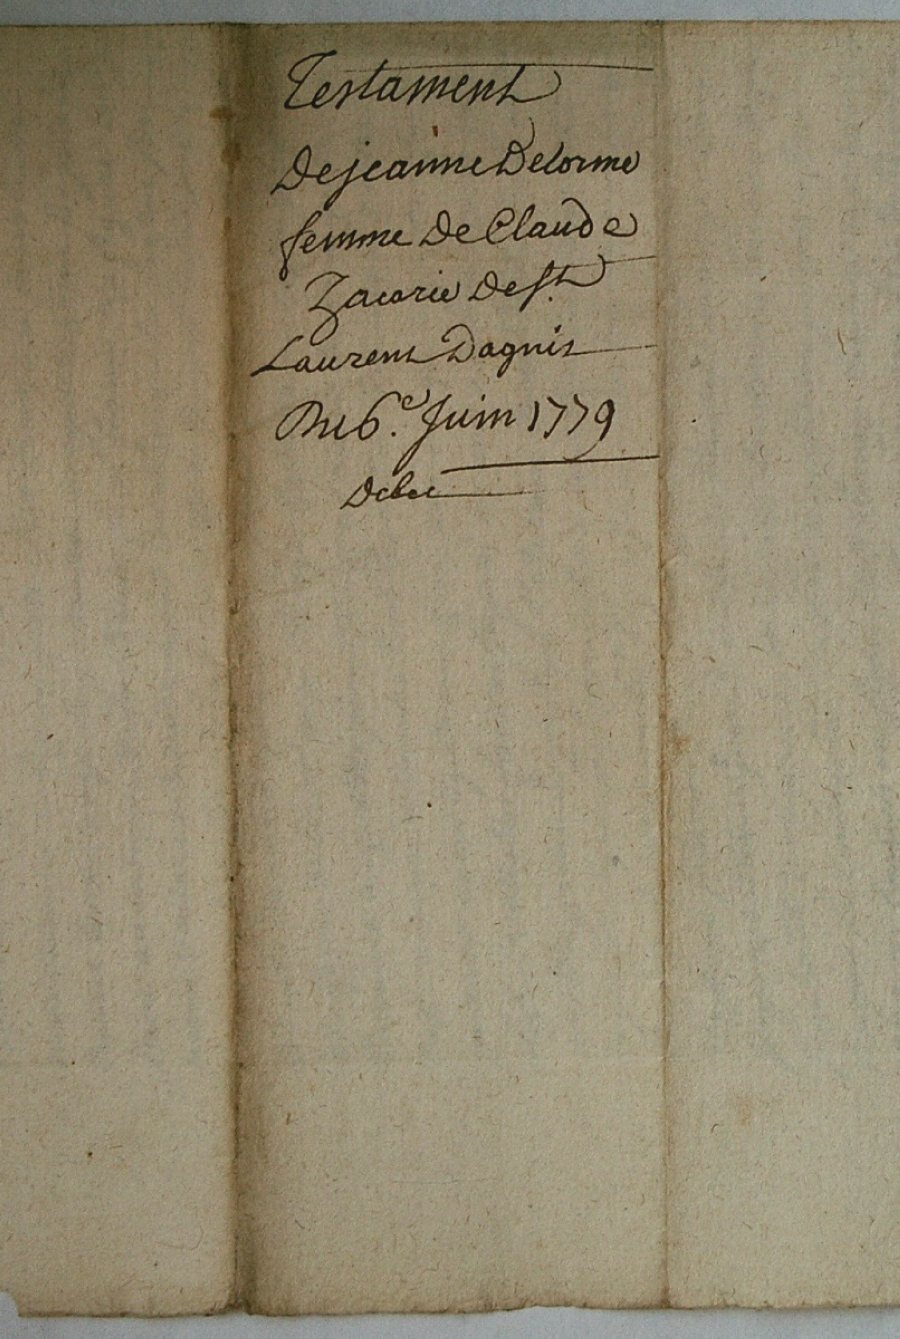 Testament
De jeanne Delorme
femme De Claude
Zacarie De st.
Laurent Dagnis
Du 6.e Juin 1779